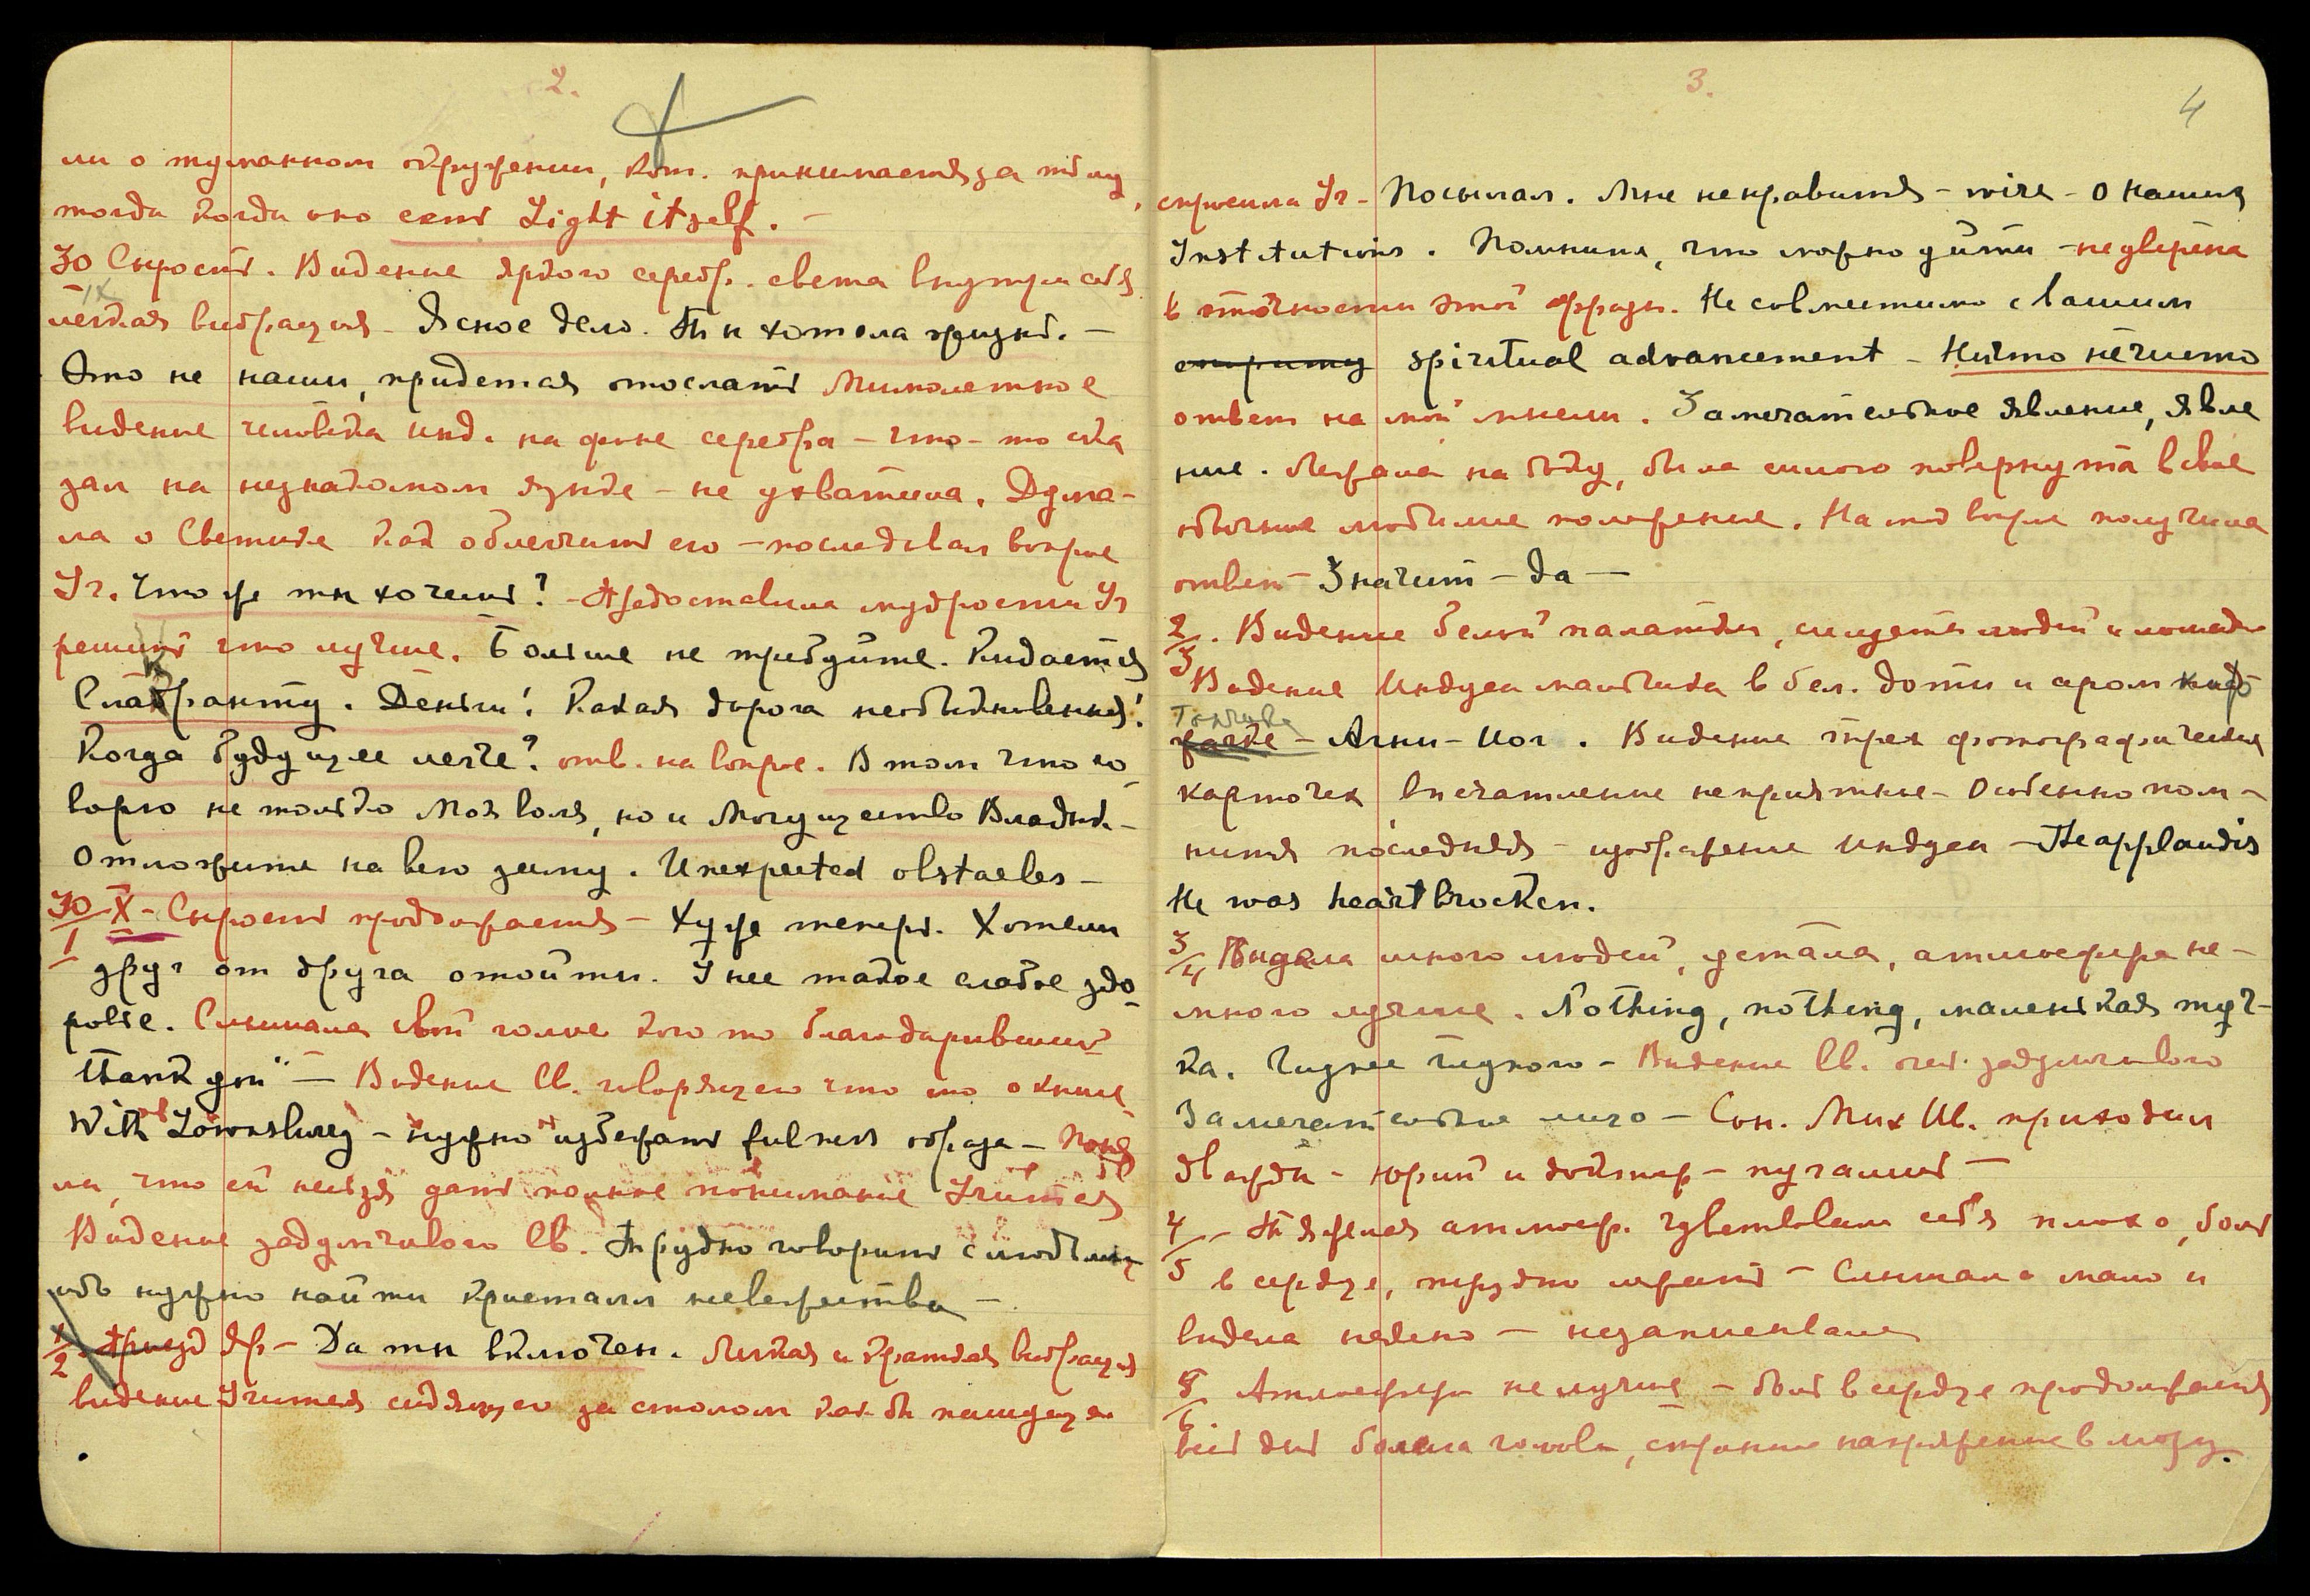 2.
ли о туманном окружении, кот. принимается за тьму,
тогда когда оно есть Light itself. –
30 Сырость. Видение яркого серебр. света внутри себя
IX
легкая вибрация – Ясное дело. Ты хотела –
Это не наши, придется отослать Мимолетное
видение человека инд. на фоне серебра – что-то ска
зал на незнакомом языке – не ухватила. Дума-
ла о Светике как облегчить его – последовал вопрос
Уч. Что же ты хочешь? – Предоставила мудрости Уч
решить что лучше. Больше не требуйте. Кидается
. Деньги! Какая дорога необыкновенная!
Когда будущее легче? отв. на вопрос. В том что го-
ворю не только Моя воля, но и Могущество Владык –
Отложите на всю зиму. Unexpected obstacles –
30/1 X – Сырость продолжается – Хуже теперь. Хотели
друг от друга отойти. У нее такое слабое здо-
ровье. Слышала свой голос кого то благодаривший
"thank you" – Видение Св. говорящего что то о книге
With – нужно избегать fulness образа – Поня
ла, что ей нельзя дать полное понимание Учителя
Видение задумчивого Св. Трудно говорить с людьми,
ибо нужно найти кристалл невежества –
1/2 Приезд Яр – Да ты включен. Легкая и краткая вибрация
видение Учителя сидящего за столом как бы пишущего
3.
4
спросила Уч – Посылал. Мне не нравится – wire – о наших
Institutions. Помнишь, что можно уйти – не уверена
в точности этой фразы. Не совместимо с вашим
spiritual advancement – Ничто нечисто
ответ на мои мысли. Замечательное явление, явле
ние. Лежала на боку, была силою повернута в свое
обычное любимое положение. На мой вопрос получила
ответ – Значит – да –
2/3. Видение белой палатки, людей и лошади
Видение Индуса мальчика в бел. доти и сером
– Агни-Йог. Видение трех фотографических
карточек впечатление неприятное – Особенно пом-
нится последняя – изображение Индуса – He applauds
He was heartbrocken.
3/4 Видела много людей, устала, атмосфера не-
много лучше. Nothing, nothing, маленькая туч-
ка. Чуднее чудного – Видение Св. очень задумчивого
Замечательное лицо – Сон. Мих Ив. приходил
дважды – Юрий и – пугаешь –
4/5 – Тяжелая атмосф. Чувствовала себя плохо, боль
в сердце, трудно лежать – Слышала мало и
видела неясно – незаписывала
5/6 Атмосфера не лучше – боль в сердце продолжается
весь день болела голова, странное напряжение в мозгу.